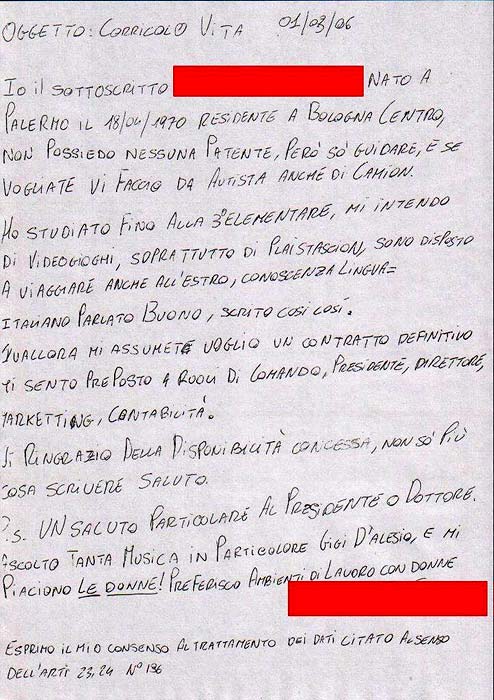 OGGETTO: CORRICOLO VITA 01/03/06
IO IL SOTTOSCRITTO NATO A
PALERMO IL 18/04/1970 RESIDENTE A BOLOGNA CENTRO,
NON POSSIEDO NESSUNA PATENTE, PERÒ SÒ GUIDARE, E SE
VOGLIATE VI FACCIO DA AUTISTA ANCHE DI CAMION.
HO STUDIATO FINO ALLA 3° ELEMENTARE, MI INTENDO
DI VIDEOGIOGHI, SOPRATTUTTO DI PLAISTASCION, SONO DISPOSTO
A VIAGGIARE ANCHE ALL'ESTRO, CONOSCENZA LINGUA=
ITALIANO PARLATO BUONO, SCRITO COSI COSÍ.
QUALLORA MI ASSUMETE VOGLIO UN CONTRATTO DEFINITIVO
MI SENTO PREPOSTO A ROOLI DI COMANDO, PRESIDENTE, DIRETTORE,
MARKETTING, CONTABILITÁ.
VI RINGRAZIO DELLA DISPONIBILITÀ CONCESSA, NON SÓ PIÙ
COSA SCRIVERE SALUTO.
P.S. UN SALUTO PARTICOLARE AL PRESIDENTE O DOTTORE.
ASCOLTO TANTA MUSICA IN PARTICOLORE GIGI D'ALESIO, E MI
PIACIONO LE DONNE! PREFERISCO AMBIENTI DI LAVORO CON DONNE
ESPRIMO IL MIO CONSENSO AL TRATTAMENTO DEI DATI CITATO AL SENSO
DELL'ARTI 23,24 N° 196